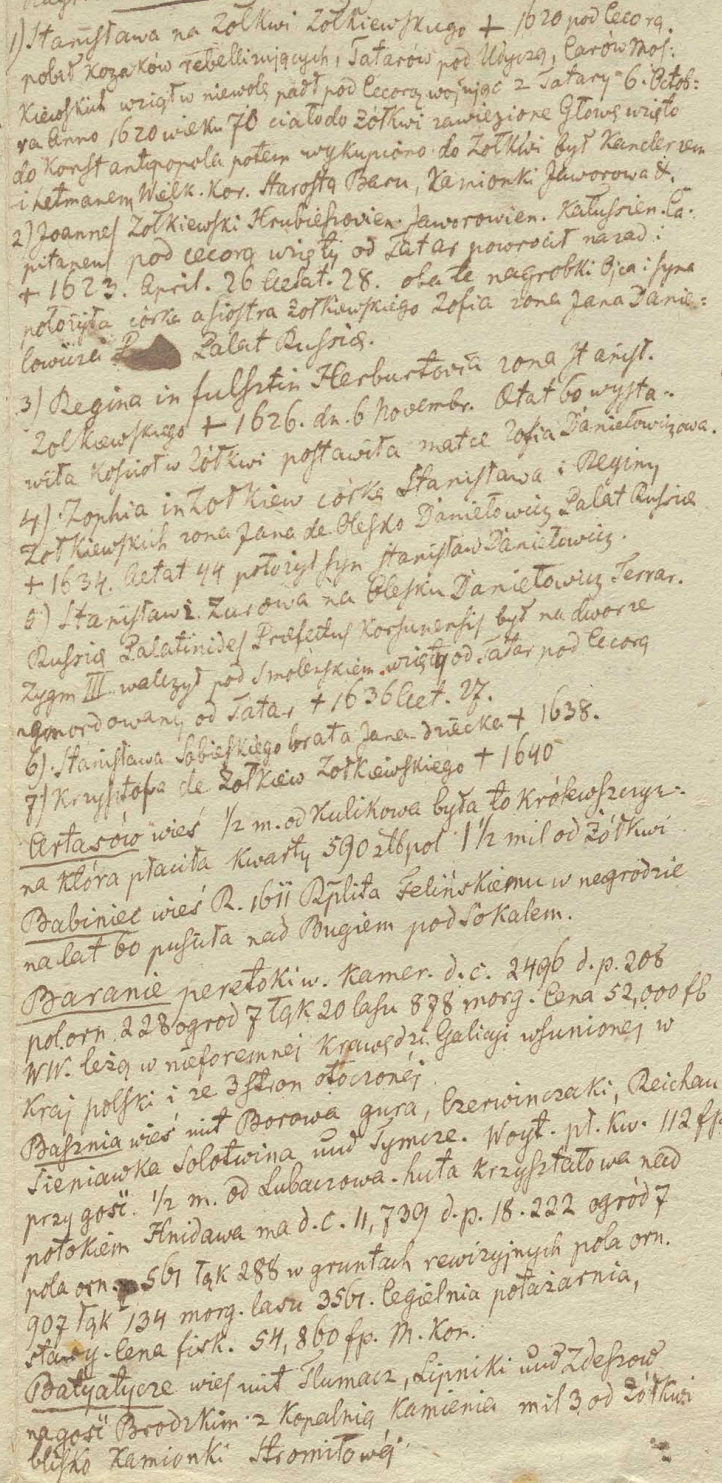 1) Stanisława na Żołkwi Żołkiewskiego + 1620 pod Cecorą.
pobił kozaków rebellizujących, Tatarów pod Udyczą, Carów Mos:
kiewskich wziął w niewolę padł pod Cecorą wojując z Tatary 6. Octob:
ra Anno 1620 wieku 70 ciało do Żółkwi zawiezione Głowę wzięto
do Konstantynopola potem wykupiono do Żołkwi był Kanclerzem
i hetmanem Wielk. Kor. Starostą Baru, Kamionki Jaworowa &.
2) Joannes Żołkiewski Hrubieszovien. Jaworowien. Kałussien. Ca:
pitaneus pod Cecorą wzięty od Tatar powrocił nazad i
+ 1623. April. 26 Aetat. 28. oba te nagrobki Ojca i syna
położyła córka a siostra Żołkiewskiego Zofia żona Jana Danie:
lowicza Palat Russiæ.
3) Regina in fulsztin Herburtovia żona Stanisł.
Żolkiewskiego + 1626. dn. 6 Novembr. Etat 60 wysta:
wiła Kościoł w Żółkwi postawiła matce Zofia Daniełowiczowa.
4) Zophia in Żołkiew córka Stanisława i Reginy
Żołkiewskich żona Jana de Olesko Daniełowicz Palat Russiæ
+ 1634. Aetat 44 położył syn Stanisław Daniełowicz.
5) Stanisław z Żurowa na Olesku Daniełowicz Terrar.
Russiæ Palatinides Præfectus Korsunensis był na dworze
Zygm III walczył pod Smoleńskiem wzięty od Tatar pod Cecorą
zamordowany od Tatar + 1636 Aet. 27.
6) Stanisława Sobieskiego brata Jana dziecka + 1638.
7) Krzysztofa de Żołkiew Żołkiewskiego + 1640
Artasów wieś 1/2 m. od Kulikowa była to królewszczyz-
na która płaciła kwarty 590 złtpol 1 1/2 mil od Żółkwi
Babiniec wieś R. 1611 Rplita Felińskiemu w nagrodzie
na lat 60 puściła nad Bugiem pod Sokalem.
Baranie peretoki w. Kamer. d. c. 2496 d. p. 208
pol. orn. 228 ogrod 7 łąk 20 lasu 878 morg. Cena 52,000 fl
WW. leżą w nieforemnej krawędzi Galicyi wsunionej w
kraj polski i ze 3 stron otoczonéj.
Basznia wieś mit Borowa gura, Czerwinczaki, Reichau
Sieniawka Sołotwina und Tymcze. Woyt. pł. kw. 112 fp.
przy gość. 1/2 m. od Lubaczowa. huta Krzyształowa nad
potokiem Hnidawa ma d. c. 11,739 d. p. 18. 222 ogród 7
pola orn. 561 łąk 288 w gruntach rewizyjnych pola orn.
907 łąk 134 morg. lasu 3561. Cegielnia potażarnia,
stawy. Cena fisk. 54,860 fp. M. Kon.
Batyatycze wieś mit Tłumacz, Lipniki und Zdeszow
na gość Brodzkim z kopalnią kamienia mil 3 od Żółkwi
blisko Kamionki Stromiłowéj.